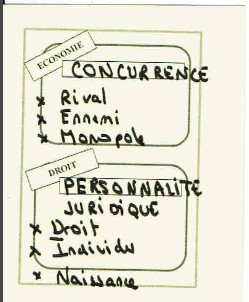 ECONOMIE
CONCURRENCE
x Rival
x Ennemi
x Monopole
DROIT
PERSONNALITE
JURIDIQUE
x Droit
x Individu
x Naissance